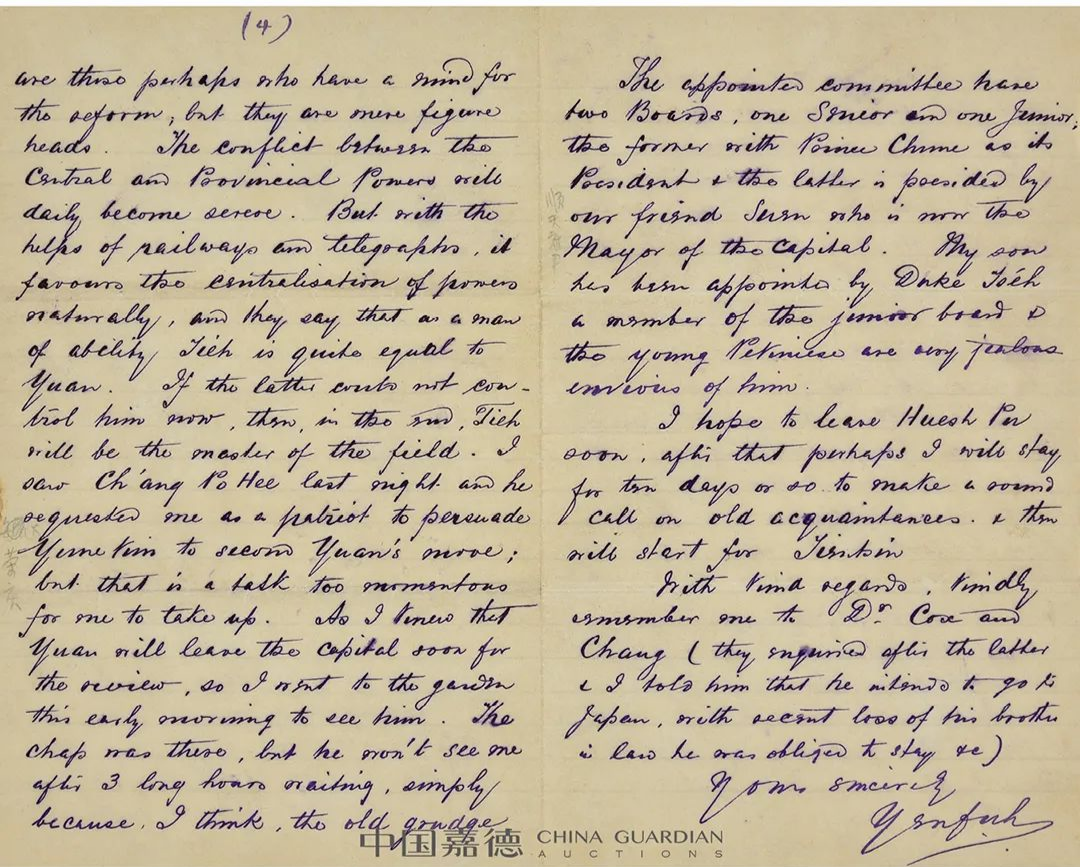 (4)
are those perhaps who have a mind for
the reform, but they are mere figure
heads. The conflict between the
Central and Provincial Powers will
daily become severe. But with the
helps of railways and telegraphs, it
favours the centralisation of powers
naturally, and they say that as a man
of ability Tieh is quite equal to
Yuan. If the latter could not con-
trol him now, then, in the end, Tieh
will be the master of the field. I
saw Ch'ang Po Hee last night and he
requested me as a patriot to persuade
to second Yuan's move;
but that is a task too momentous
for me to take up. As I knew that
Yuan will leave the capital soon for
the review, so I went to the garden
this early morning to see him. The
chap was there, but he won't see me
after 3 long hours waiting, simply
because, I think, the old grudge
The appointed committee have
two Boards, one Senior and one Junior;
the former with Prince as its
President & the latter is presided by
our friend who is now the
Mayor of the Capital. My son
has been appointed by Duke Tsêh
a member of the junior board &
the young Pekinese are very jealous
envious of him.
I hope to leave Hueh Pu
soon, after that perhaps I will stay
for ten days or so to make a round
call on old acquaintances. & then
will start for Tientsin
With kind regards, kindly
remember me to Dr. Cox and
Chang (they enquired after the latter
& I told him that he intends to go to
Japan, with recent loss of his brother
in law he was obliged to stay &c)
Yours sincerely
Yenfuh
順天府尹
中国嘉德 CHINA GUARDIAN
AUCTIONS